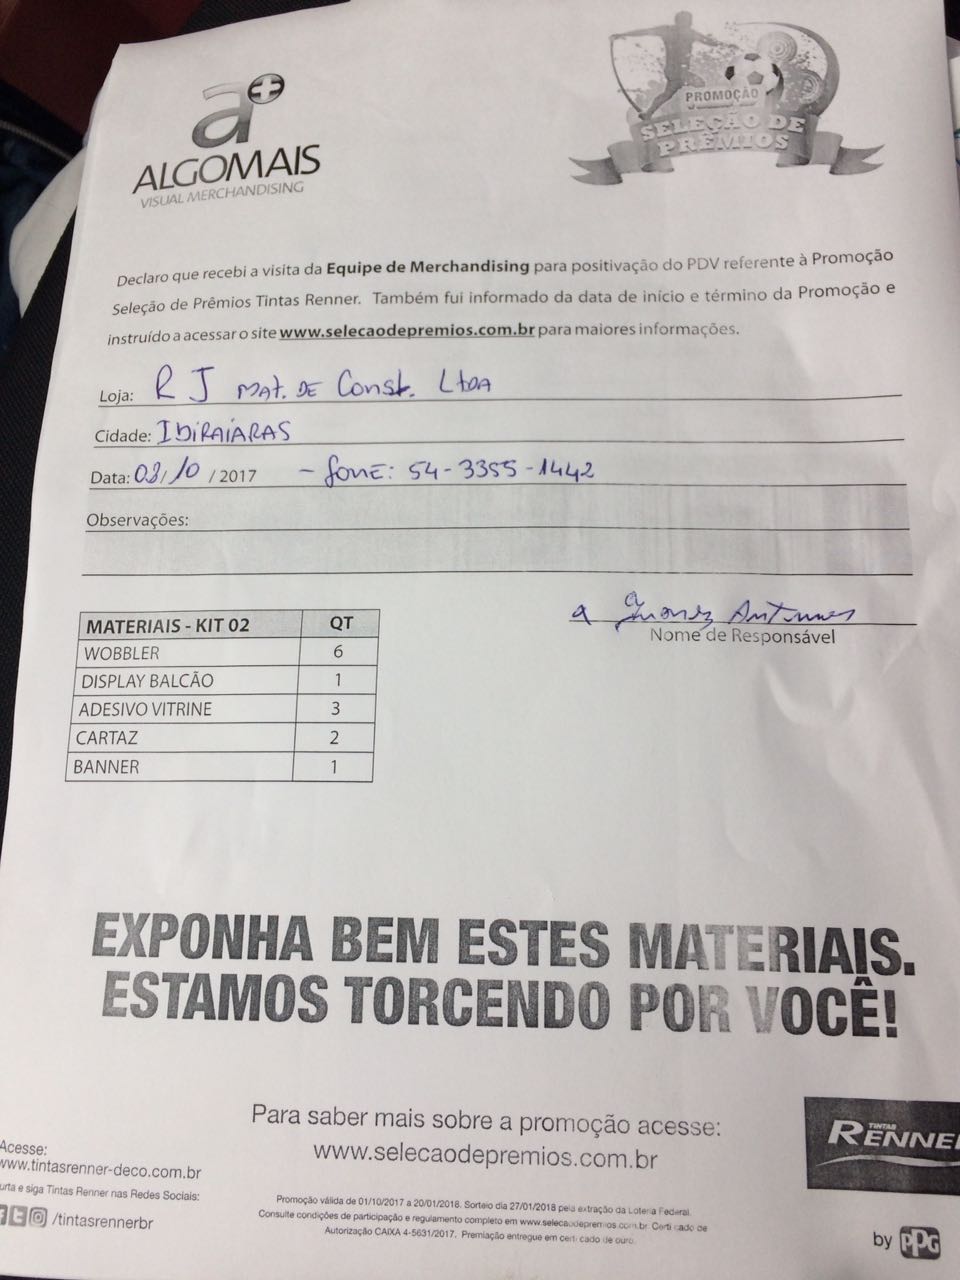 a+
ALGOMAIS
VISUAL MERCHANDISING
PROMOÇÃO
SELEÇÃO DE
PRÊMIOS
Declaro que recebi a visita da Equipe de Merchandising para positivação do PDV referente à Promoção
Seleção de Prêmios Tintas Renner. Também fui informado da data de início e término da Promoção e
instruído a acessar o site www.selecaodepremios.com.br para maiores informações.
Loja: R J MAT. DE Const. LtDA
Cidade: IbiRAIARAS
Data: 03/10 /2017 - fone: 54-3355-1442
Observações:
Antunes
Nome de Responsável
MATERIAIS - KIT 02 QT
WOBBLER 6
DISPLAY BALCÃO 1
ADESIVO VITRINE 3
CARTAZ 2
BANNER 1
EXPONHA BEM ESTES MATERIAIS.
ESTAMOS TORCENDO POR VOCÊ!
Para saber mais sobre a promoção acesse:
www.selecaodepremios.com.br
Acesse:
www.tintasrenner-deco.com.br
urta e siga Tintas Renner nas Redes Sociais:
/tintasrennerbr
Promoção válida de 01/10/2017 a 20/01/2018. Sorteio dia 27/01/2018 pela extração da Loteria Federal.
Consulte condições de participação e regulamento completo em www.selecaodepremios.com.br. Certificado de
Autorização CAIXA 4-5631/2017. Premiação entregue em certificado de ouro.
TINTAS
RENNER
by PPG